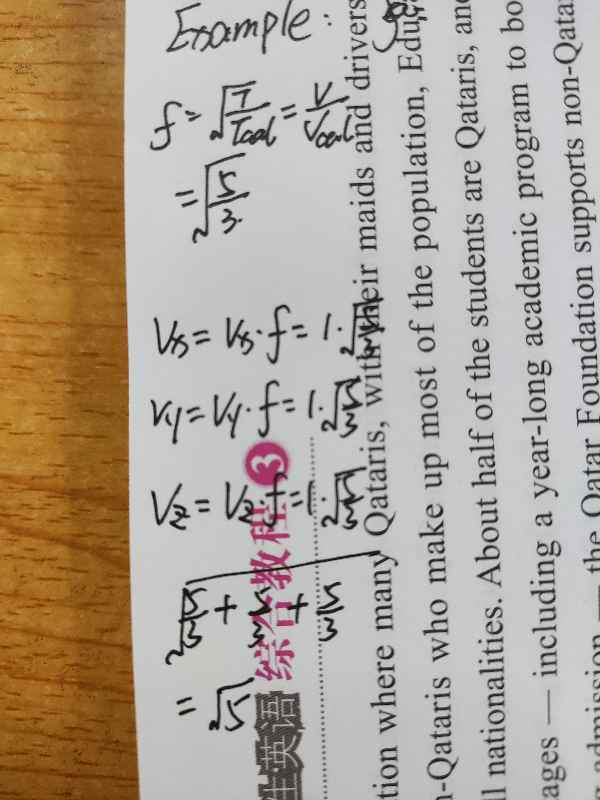 Example:
f = √(T/Tcal) = V/Vcal
= √(5/3)
Vx = Vx · f = 1 · √(5/3)
Vy = Vy · f = 1 · √(5/3)
Vz = Vz · f = 1 · √(5/3)
√(5/3 + 5/3 + 5/3)
= √5
英语 综合教程 3
tion where many Qataris, with their maids and drivers
-Qataris who make up most of the population, Educa
ll nationalities. About half of the students are Qataris, and
ages — including a year-long academic program to bo
admission — the Qatar Foundation supports non-Qatar